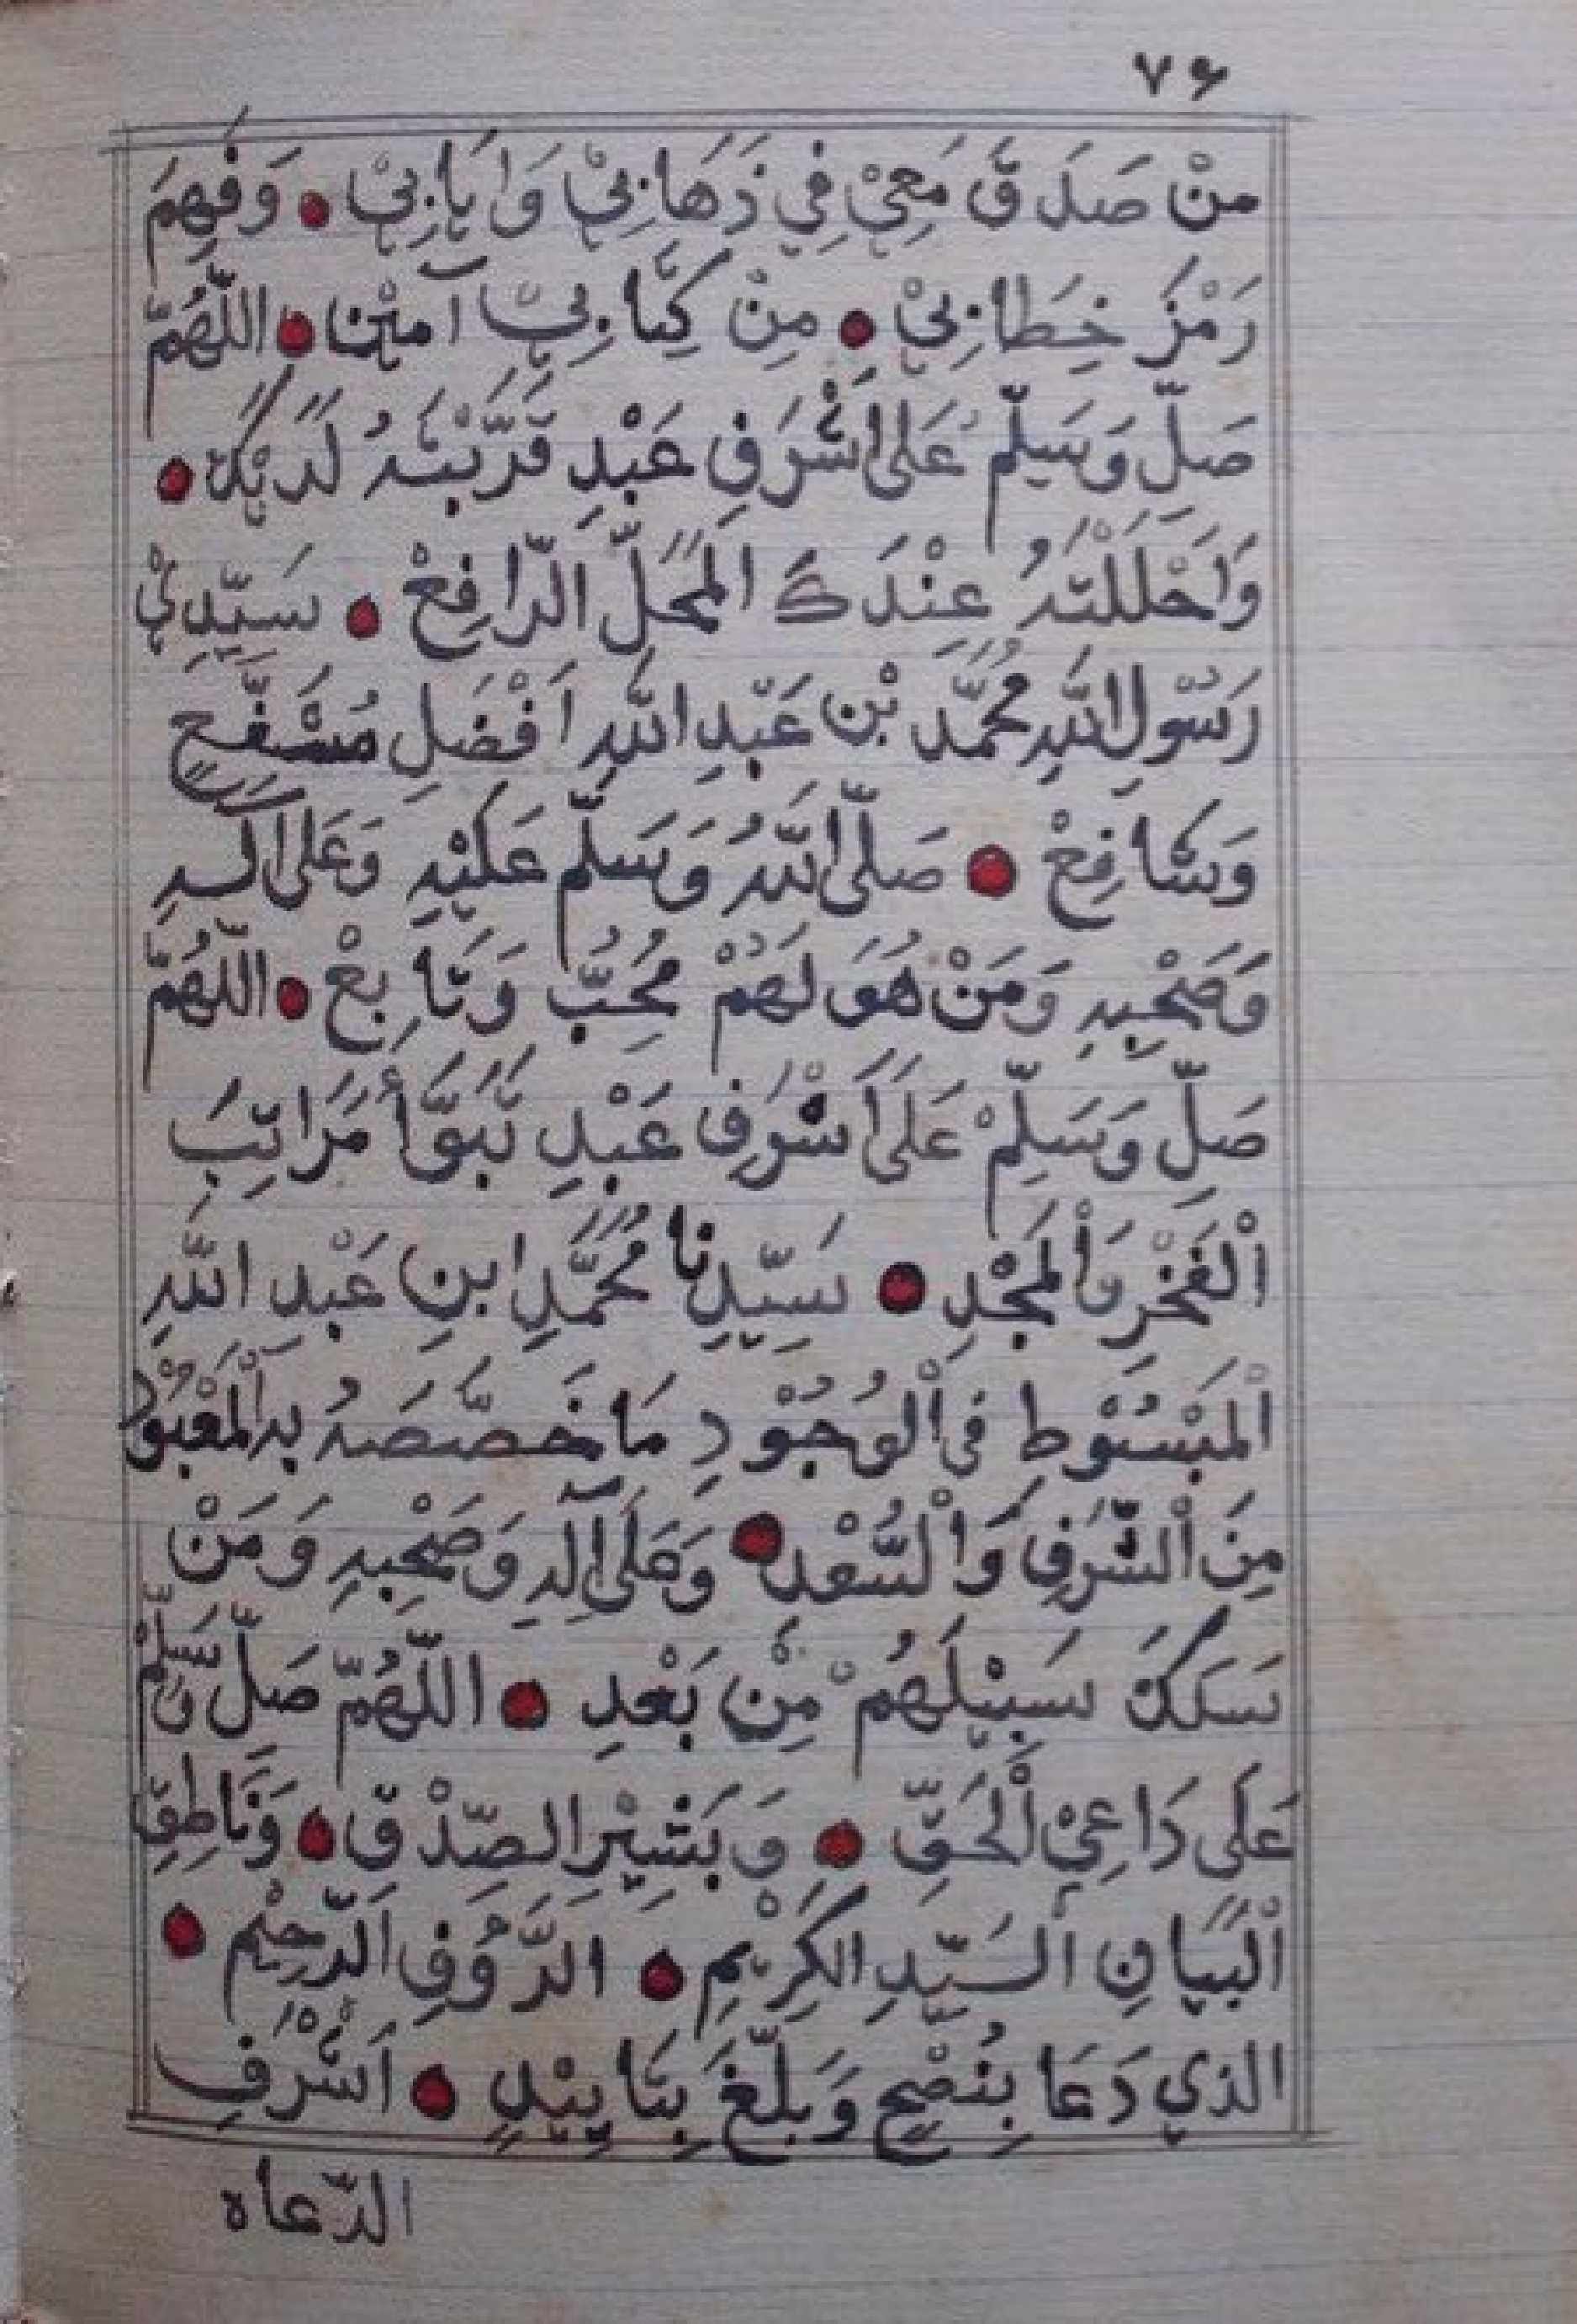 ٧٦
مِنْ صَدَقَ مَعِيْ فِي ذَهَابِيْ وَاِيَابِيْ • وَفَهِمَ
رَمْزَ خِطَابِيْ • مِنْ كِتَابِيْ آمِيْن • اللّٰهُمَّ
صَلِّ وَسَلِّمْ عَلَى اَشْرَفِ عَبْدٍ قَرَّبْتَهُ لَدَيْكَ •
وَاَحْلَلْتَهُ عِنْدَكَ الْمَحَلَّ الرَّافِعْ • سَيِّدِيْ
رَسُوْلِ اللهِ مُحَمَّد بْن عَبْدِ اللهِ اَفْضَلِ مُشَفَّعٍ
وَشَافِعْ • صَلَّى اللهُ وَسَلَّمَ عَلَيْهِ وَعَلَى آلِهِ
وَصَحْبِهِ وَمَنْ هُوَ لَهُمْ مُحِبٌّ وَتَابِعْ • اللّٰهُمَّ
صَلِّ وَسَلِّمْ عَلَى اَشْرَفِ عَبْدٍ تَبَوَّأَ مَرَاتِبَ
الْفَخْرِ وَالْمَجْدِ • سَيِّدِنَا مُحَمَّدِ ابنِ عَبْدِ اللهِ
الْمَبْسُوْطِ فِى الْوُجُوْدِ مَا خَصَّصَهُ بِهِ الْمَعْبُوْدُ
مِنَ الْشَّرَفِ وَالْسَّعْدِ • وَعَلَى آلِهِ وَصَحْبِهِ وَمَنْ
سَلَكَ سَبِيْلَهُمْ مِنْ بَعْدِ • اللّٰهُمَّ صَلِّ وَسَلِّمْ
عَلَى دَاعِيْ الْحَقِّ • وَبَشِيْرِ الصِّدْقِ • وَنَاطِقِ
الْبَيَانِ السَيِّدِ الكَرِيْمِ • الرَّؤُفِ الرَّحِيْمِ •
الذي دَعَا بِنُصْحٍ وَبَلَّغَ بِتَايِيْدٍ • اَشْرَفِ
الدّعاه